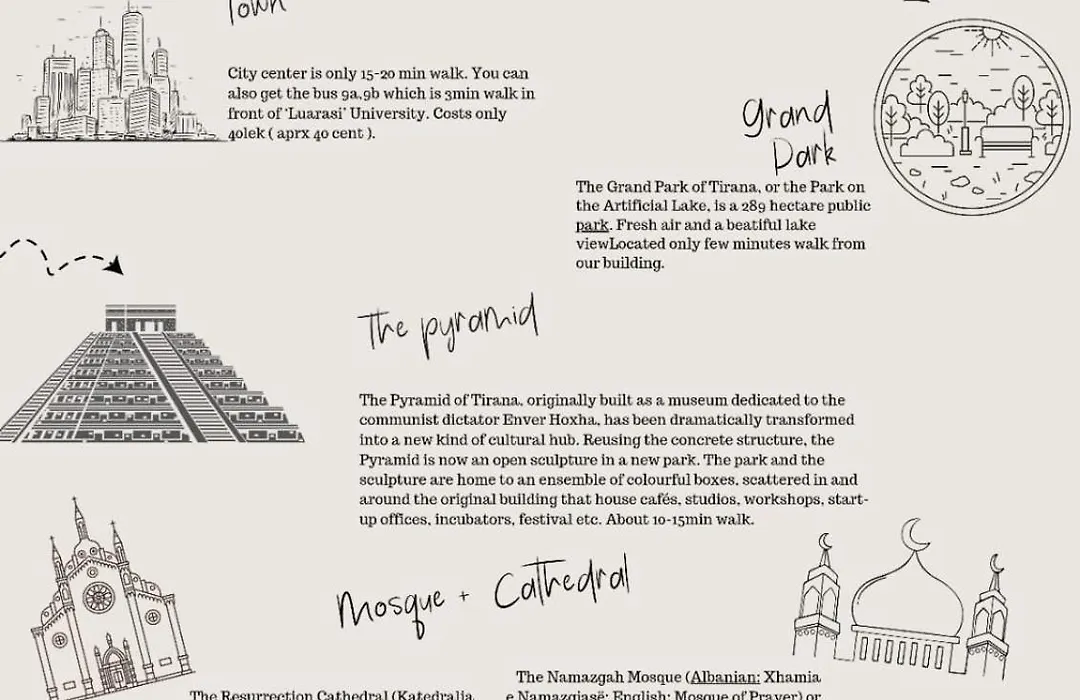 Town
City center is only 15-20 min walk. You can
also get the bus 9a,9b which is 3min walk in
front of 'Luarasi' University. Costs only
40lek ( aprx 40 cent ).
Grand
Park
The Grand Park of Tirana, or the Park on
the Artificial Lake, is a 289 hectare public
park. Fresh air and a beatiful lake
viewLocated only few minutes walk from
our building.
The pyramid
The Pyramid of Tirana, originally built as a museum dedicated to the
communist dictator Enver Hoxha, has been dramatically transformed
into a new kind of cultural hub. Reusing the concrete structure, the
Pyramid is now an open sculpture in a new park. The park and the
sculpture are home to an ensemble of colourful boxes, scattered in and
around the original building that house cafés, studios, workshops, start-
up offices, incubators, festival etc. About 10-15min walk.
Mosque + Cathedral
The Resurrection Cathedral (Katedralja
The Namazgah Mosque (Albanian: Xhamia
e Namazgjasë; English: Mosque of Prayer) or